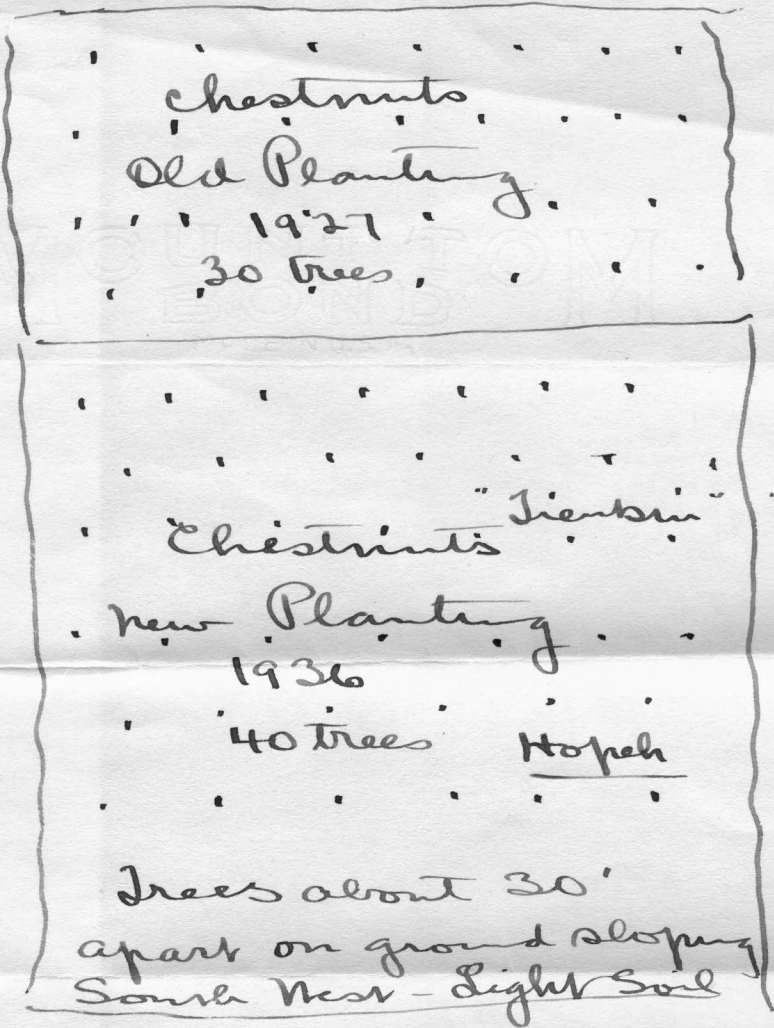 Chestnuts
Old Planting
1927
30 trees
"Tientsin"
Chestnuts
New Planting
1936
40 trees Hopeh
Trees about 30'
apart on ground sloping
South West - Light Soil